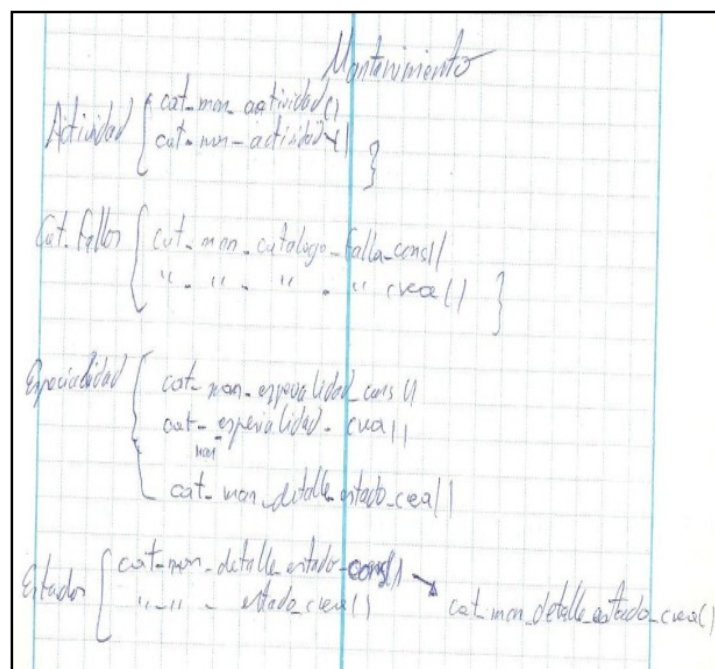 Mantenimiento
Actividad { cat_man_actividad()
cat_man_actividad () }
Cat. Fallos { cat_man_catalogo_falla_cons()
" - " - " - " crea() }
Especialidad { cat_man_especialidad_cons()
cat_man_especialidad_crea()
cat_man_detalle_estado_crea()
Estados { cat_man_detalle_estado_cons() → cat_man_detalle_estado_crea()
" - " - estado_crea()